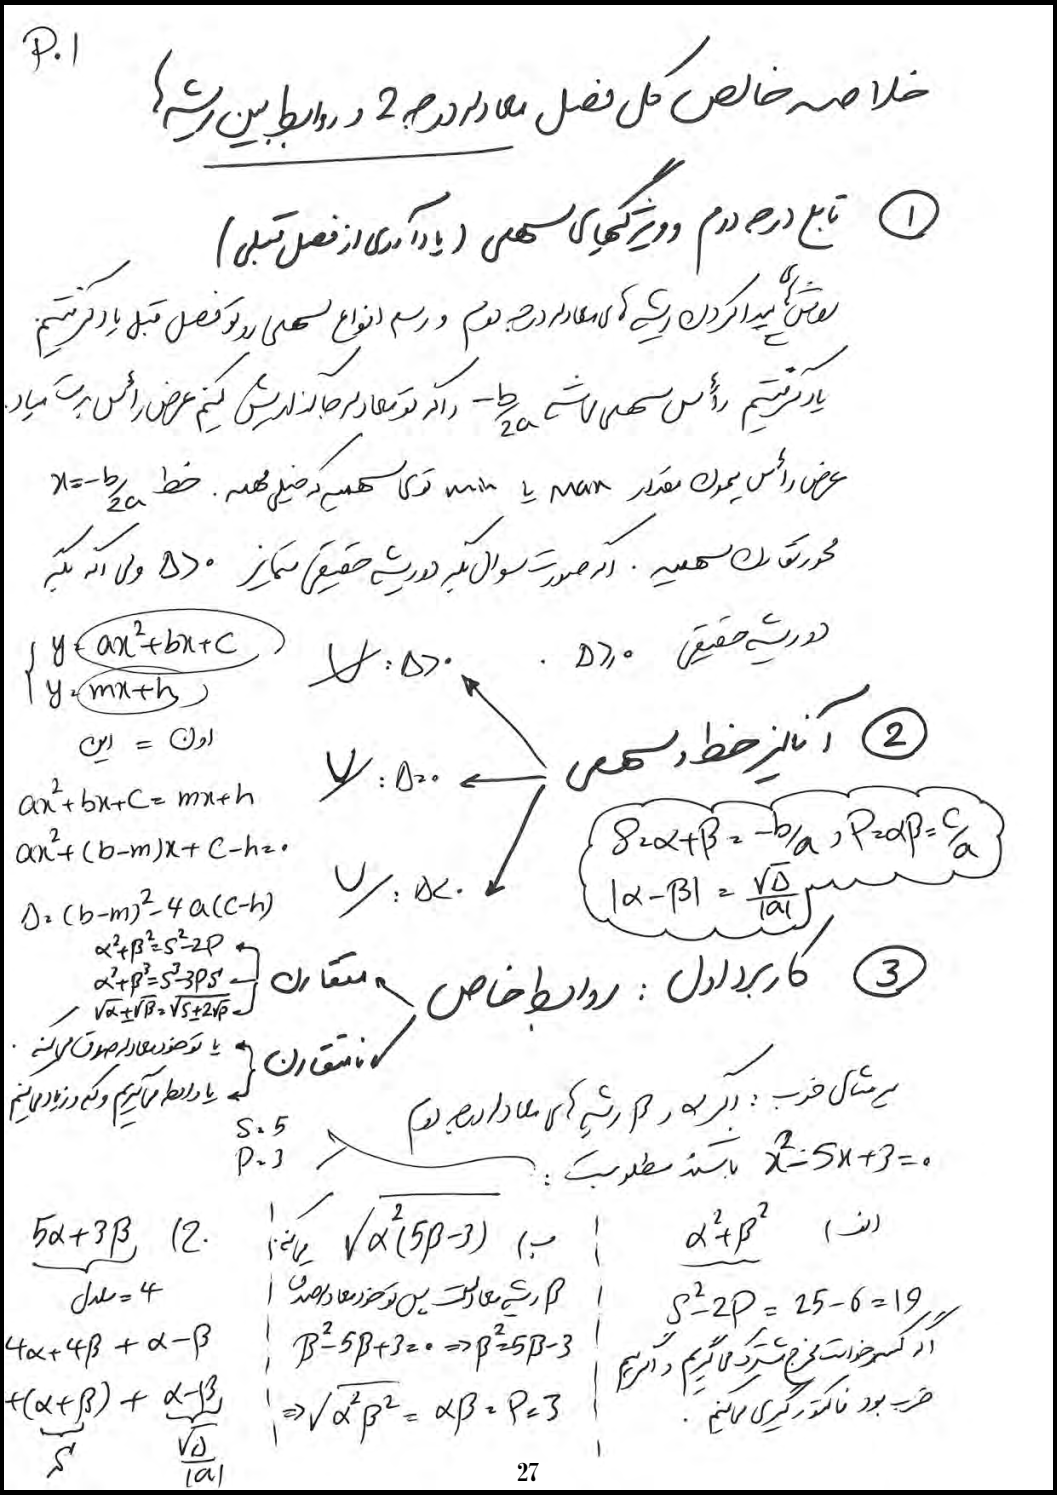 P.1
خلاصه خالص کل فصل معادله درجه 2 و روابط بین ریشه ها
① تابع درجه دوم و ویژگیهای سهمی (یادآوری از فصل قبلی)
روش های پیدا کردن ریشه های معادله درجه دوم و رسم انواع سهمی رو تو فصل قبل یاد گرفتیم
یاد گرفتیم رأس سهمی میشه -b/2a و اگه تو معادله جایگذاریش کنیم عرض رأس بدست میاد.
عرض رأس یجورایی مقدار max یا min توی سهمیه که خیلی مهمه. خط x=-b/2a
محور تقارن سهمیه. اگه صورت سوال بگه دو ریشه حقیقی متمایز Δ>0 ولی اگه بگه
دو ریشه حقیقی Δ≥0.
② آنالیز خط و سهمی
: Δ>0
: Δ=0
: Δ<0
y=ax²+bx+c
y=mx+h
اون = این
ax²+bx+c=mx+h
ax²+(b-m)x+c-h=0
Δ=(b-m)²-4a(c-h)
S=α+β=-b/a , P=αβ=c/a
|α-β|=√Δ/|a|
③ کاربرد اول: روابط خاص
متقارن
α²+β²=S²-2P
α³+β³=S³-3PS
√α±√β=√S±2√P
نامتقارن
یا تو خود معادله صدق میکنه.
یا رابطه میگیریم و کم و زیاد میکنیم
مثال خوب: اگر α و β ریشه های معادله درجه دوم
x²-5x+3=0 باشند مطلوبست:
S=5
P=3
الف) α²+β²
S²-2P=25-6=19
اگه کسر خواست مخرج مشترک میگیریم و اگر هم
ضرب بود فاکتورگیری میکنیم.
ب) √α²(5β-3)
β ریشه معادلست پس تو خود معادله صدق میکنه:
β²-5β+3=0 ⇒ β²=5β-3
⇒ √α²β² = αβ = P = 3
2) 5α+3β
معدل = 4
4α+4β+α-β
+(α+β)+α-β
S
√Δ/|a|
27